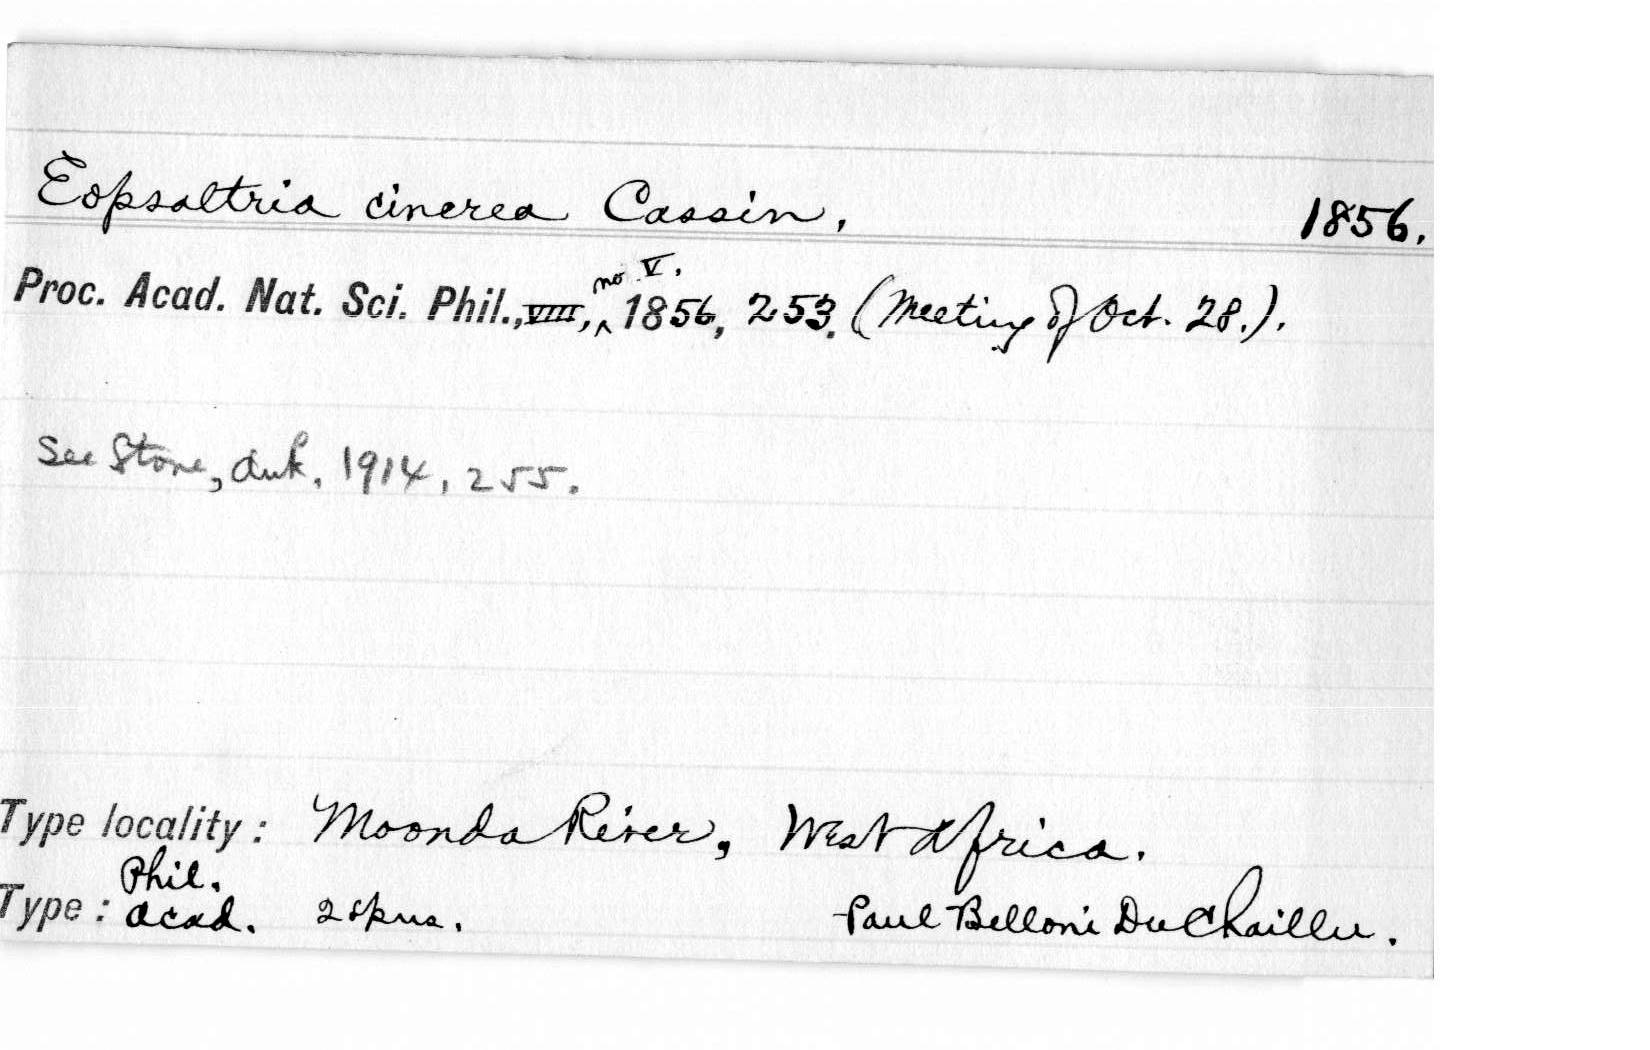 Eopsaltria cinerea Cassin, 1856.
Proc. Acad. Nat. Sci. Phil., VIII, no V. 1856, 253. (Meeting of Oct. 28.).
See Stone, Auk, 1914, 255.
Type locality: Moonda River, West Africa.
Type: Phil. Acad. 2 spms. Paul Belloni DuChaillu.